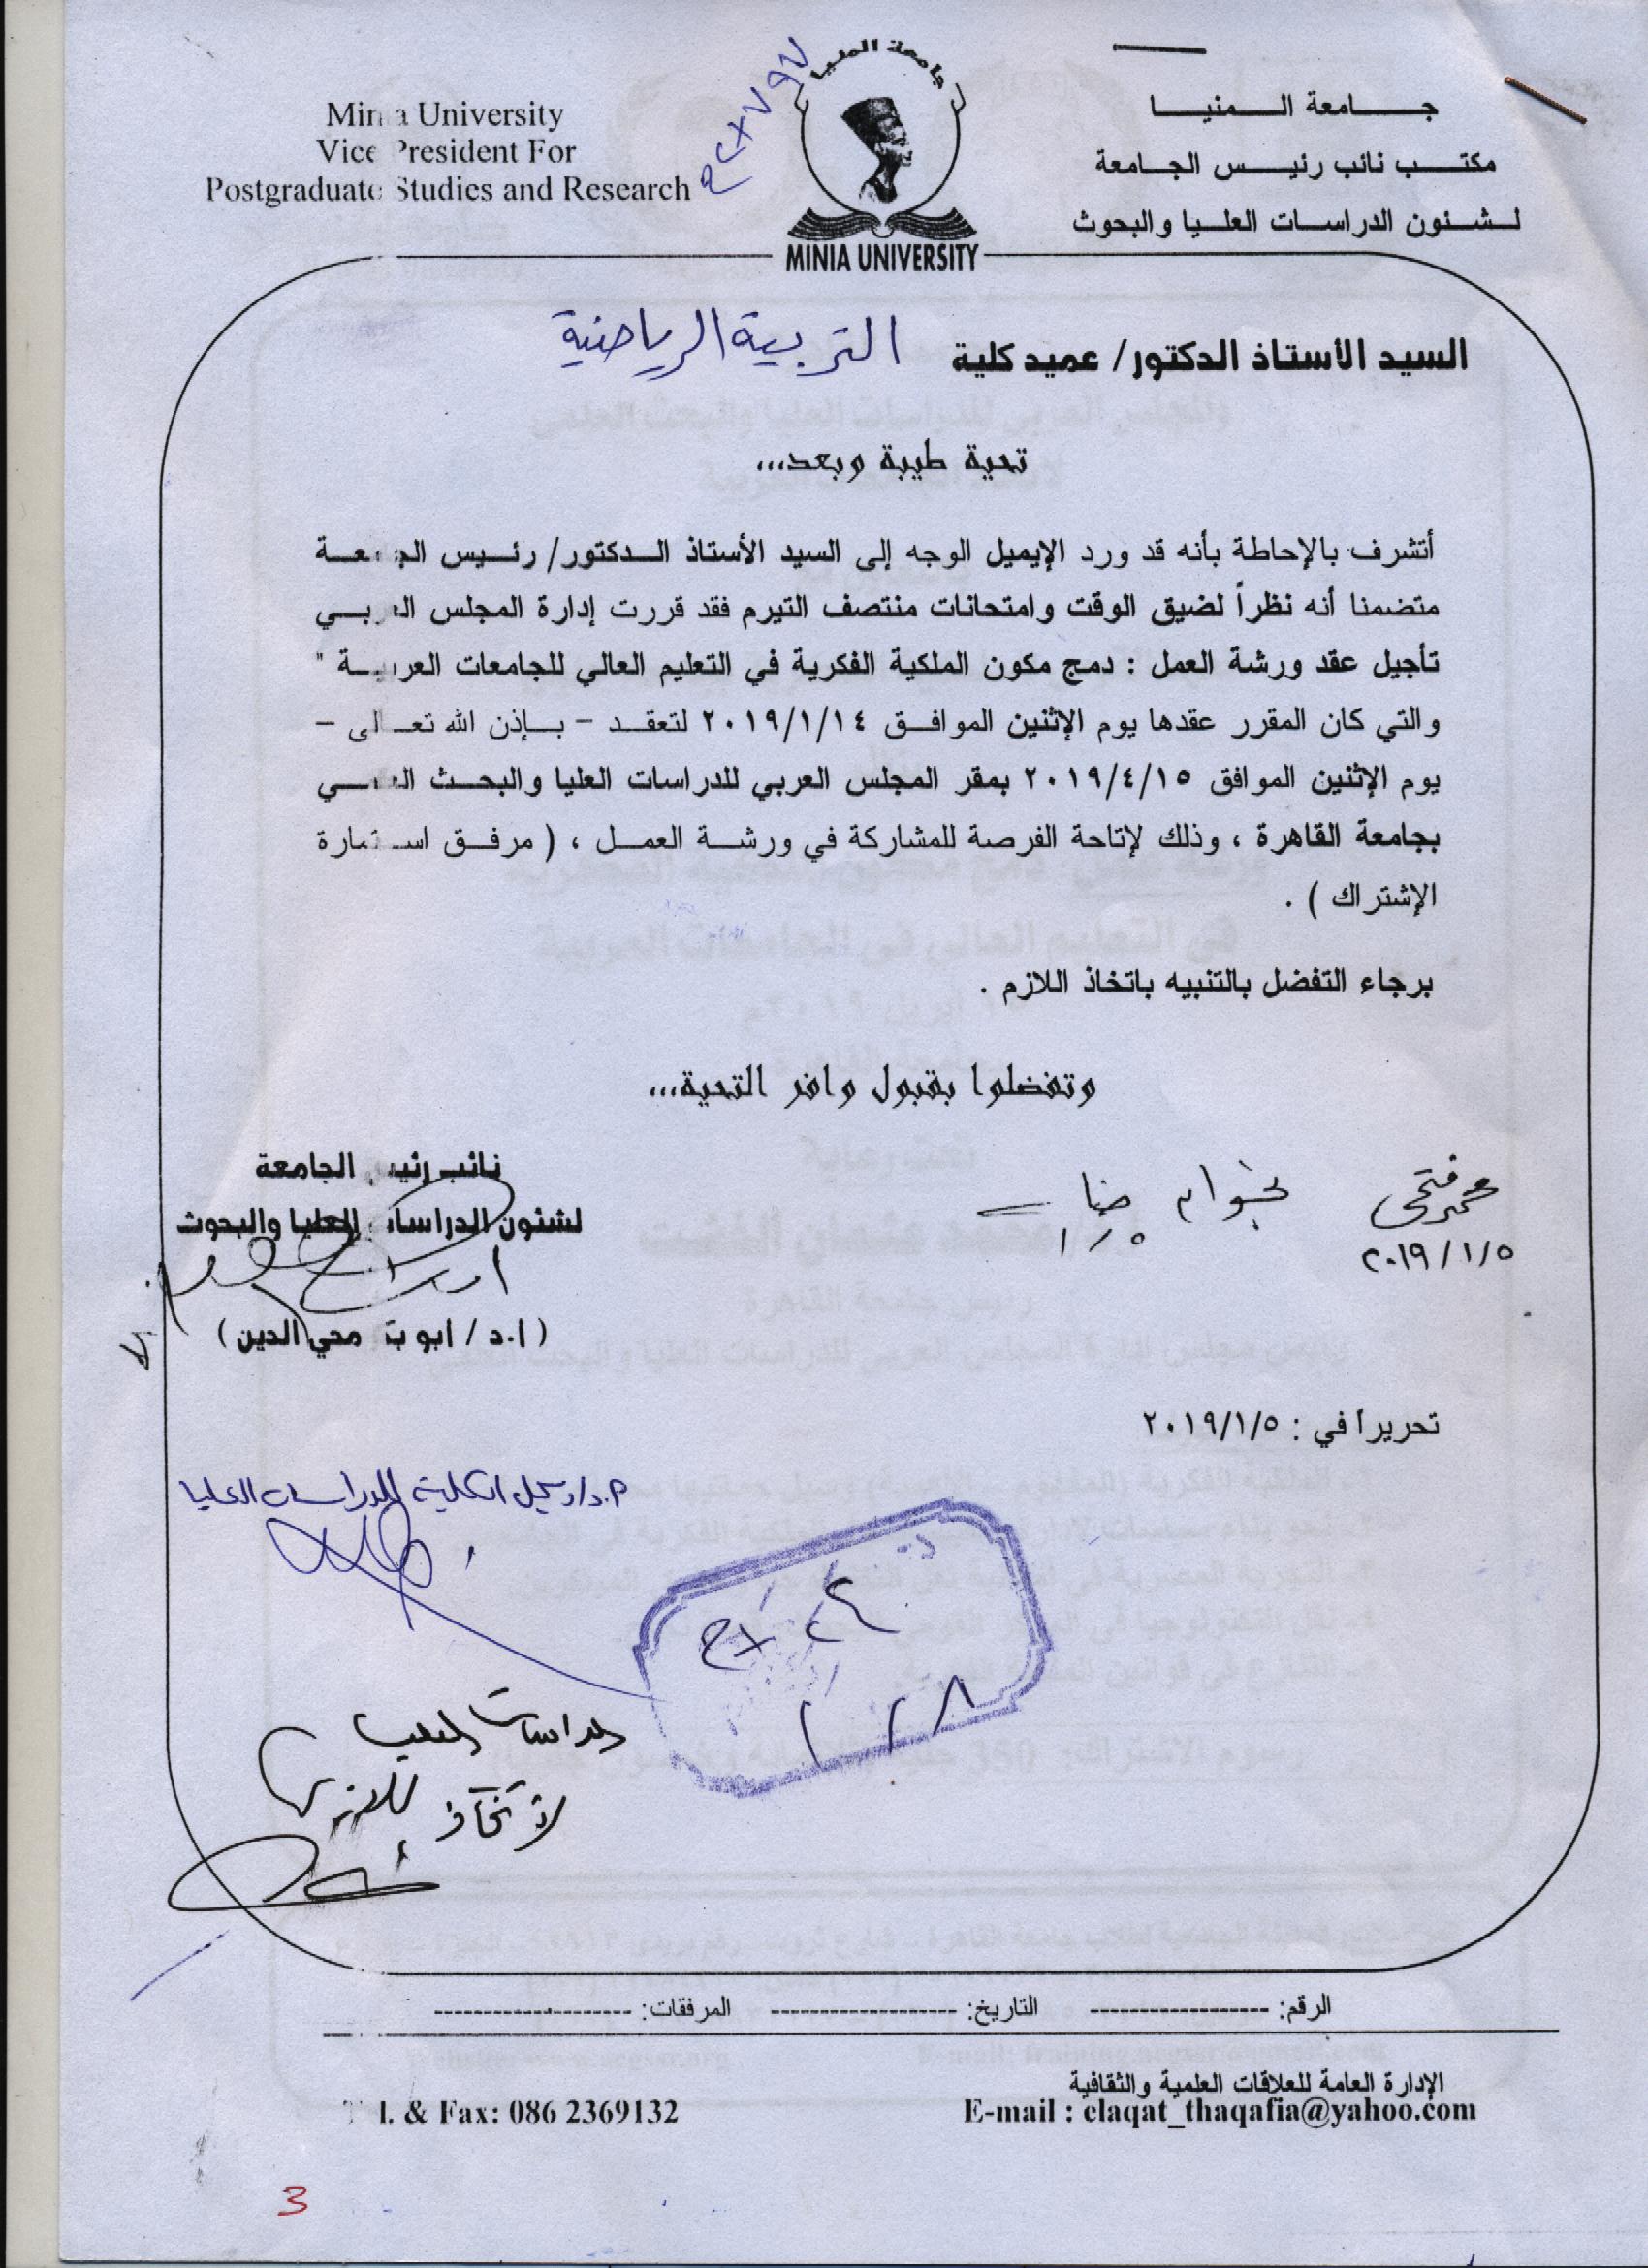 Minia University
Vice President For
Postgraduate Studies and Research
جامعة المنيا
MINIA UNIVERSITY
جـــامعة الـــمنيـــا
مكتـــب نائب رئيـــس الجـامعة
لـشـئون الدراسـات العلـيا والبحوث
السيد الأستاذ الدكتور/ عميد كلية التربية الرياضية
تحية طيبة وبعد...
أتشرف بالإحاطة بأنه قد ورد الإيميل الوجه إلى السيد الأستاذ الـدكتور/ رئـيس الجامعـة
متضمنا أنه نظراً لضيق الوقت وامتحانات منتصف التيرم فقد قررت إدارة المجلس العربـي
تأجيل عقد ورشة العمل : دمج مكون الملكية الفكرية في التعليم العالي للجامعات العربيـة "
والتي كان المقرر عقدها يوم الإثنين الموافـق ٢٠١٩/١/١٤ لتعقـد – بـإذن الله تعـالى –
يوم الإثنين الموافق ٢٠١٩/٤/١٥ بمقر المجلس العربي للدراسات العليا والبحـث العلمـي
بجامعة القاهرة ، وذلك لإتاحة الفرصة للمشاركة في ورشـة العمـل ، ( مرفـق اسـتمارة
الإشتراك ) .
برجاء التفضل بالتنبيه باتخاذ اللازم .
وتفضلوا بقبول وافر التحية...
نائب رئيس الجامعة
لشئون الدراسات العليا والبحوث
( أ.د / أبو محي الدين )
محمد فتحى
٢٠١٩/١/٥
تحريرا في : ٢٠١٩/١/٥
أ.د/ وكيل الكلية للدراسات العليا
الدراسات العليا
لاتخاذ اللازم
الرقم: ------------------ التاريخ: ------------------- المرفقات: --------------------
الإدارة العامة للعلاقات العلمية والثقافية
E-mail : elaqat_thaqafia@yahoo.com
Tel. & Fax: 086 2369132
3